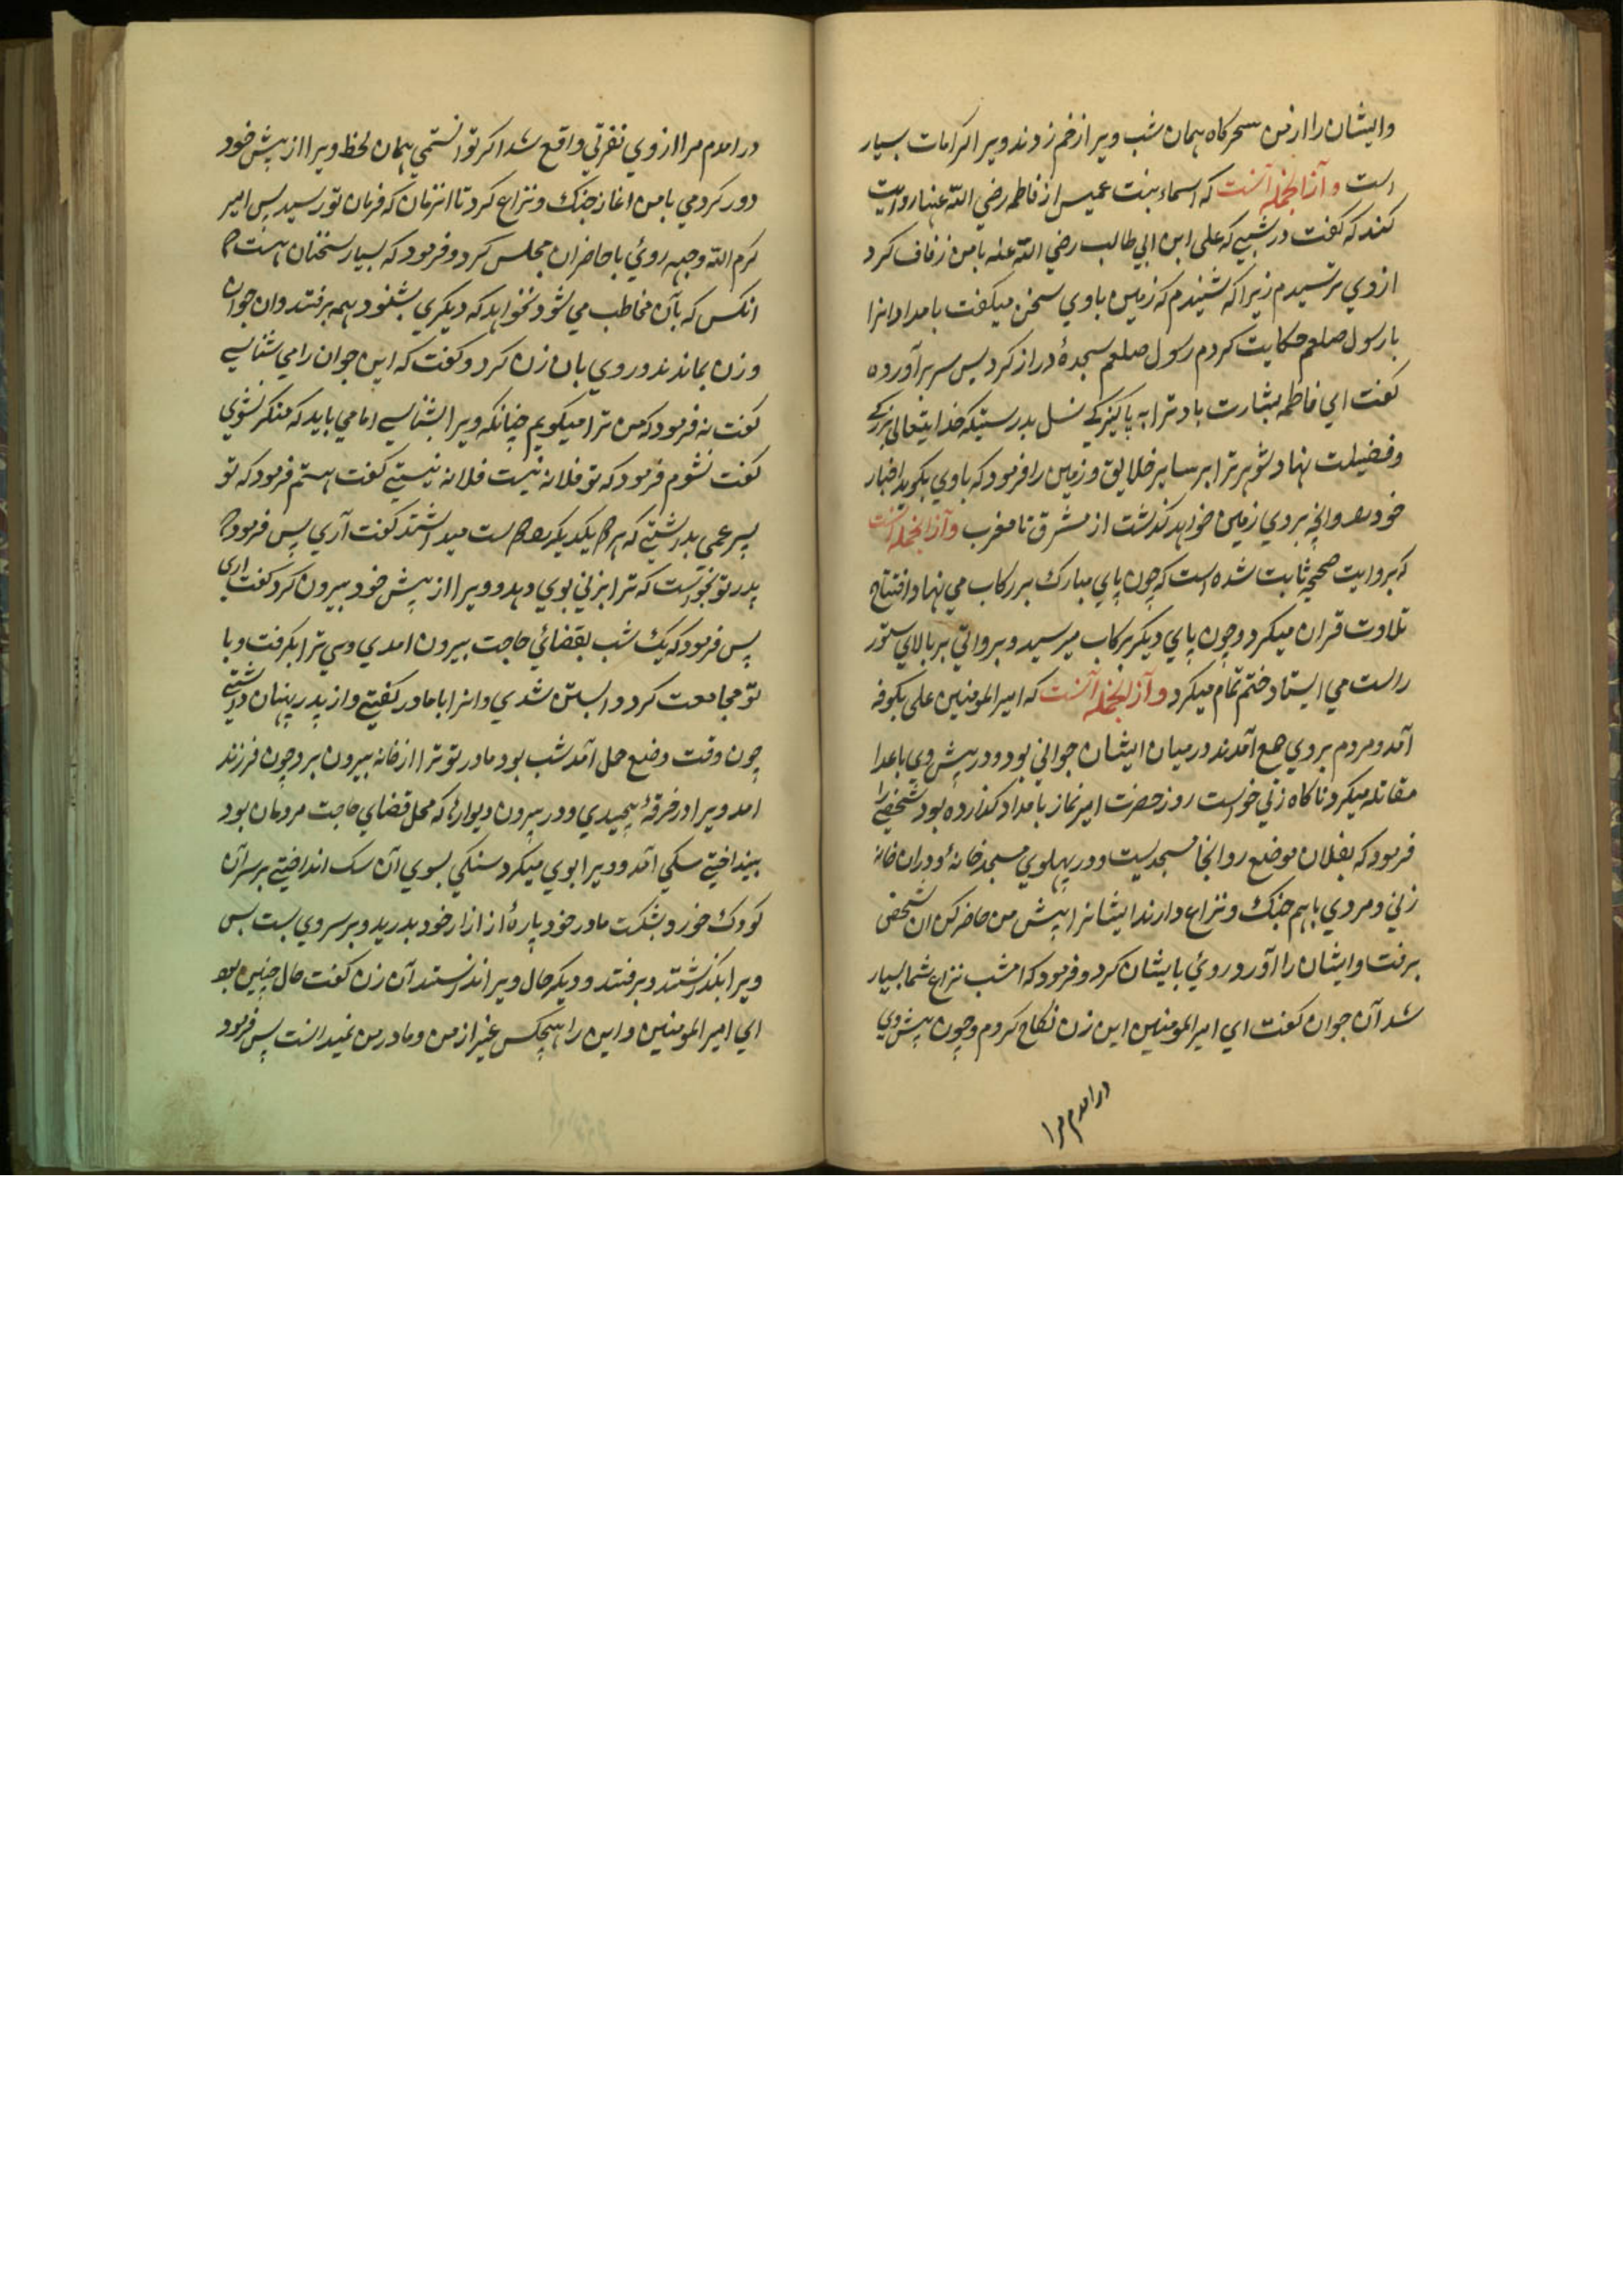 وایشان را ازمن سحرکاه همان شب ویرا زخم زدند ویرا کرامات بسیار
است وآزانجمله آنست که اسماء بنت عمیس از فاطمه رضي الله عنها روایت
کند که کفت در شبی که علی ابن ابي طالب رضي الله عنه با من زفاف کرد
ازوي ترسیدم زیرا که شنیدم که زمین باوي سخن میکفت بامداد انرا
بارسول صلعم حکایت کردم رسول صلعم سجدهٔ دراز کرد پس سر برآورده
کفت اي فاطمه بشارت باد ترا به پاکیزکے نسل بدرستیکه خدایتعالی بزرکے
وفضیلت نهاد شوهر ترا بر سایر خلایق و زمین را فرمود که باوي بکوید اخبار
خود را وانچه بر وي زمین خواهد کذشت از مشرق تا مغرب وآزانجمله آنست
که بروایت صحیح ثابت شده است که چون پاي مبارك بر رکاب مي نهاد افتتاح
تلاوت قران میکرد و چون پاي دیکر برکاب میرسید و بروایتي بر بالاي ستور
راست مي ایستاد ختم تمام میکرد وآزانجمله آنست که امیرالمومنین علي بکوفه
آمد و مردم بروي جمع آمدند در میان ایشان جوانی بود و در پیش وي باعدا
مقاتله میکرد ناکاه زني خواست روز حضرت امیر نماز بامداد کذارده بود شخصے را
فرمود که بفلان موضع رو انجا مسجدیست و در پهلوي مسجد خانهٔ و دران خانه
زني ومردي باهم جنك و نزاع دارند ایشانرا پیش من حاضر کن ان شخص
برفت وایشان را آورد روي بایشان کرد و فرمود که امشب نزاع شما بسیار
شد آن جوان کفت اي امیرالمومنین این زن نکاح کردم و چون پیش وي
درامدم مرا
درامدم مرا از وي نفرتي واقع شد اکر توانستمي همان لحظه ویرا از پیش خود
دور کردمي بامن اغاز جنك و نزاع کرد تا انزمان که فرمان تو رسید پس امیر
کرم الله وجهه روي با حاضران مجلس کرد و فرمود که بسیار سخنان هست که
انکس که بآن مخاطب مي شود نخواهد که دیکري بشنود همه برفتند وان جوان
وزن بماندند و روي بان زن کرد و کفت که این جوان را مي شناسے
کفت نه فرمود که من ترا میکویم چنانکه ویرا بشناسے اما مي باید که منکر نشوي
کفت نشوم فرمود که تو فلانه بنت فلانه نیستے کفت هستم فرمود که تو
پسر عمي نداشتے که هر دو یکدیکر را دوست میداشتند کفت آري پس فرمود که
پدر تو نخواست که ترا بزني بوي دهد و ویرا از پیش خود بیرون کرد کفت اری
پس فرمود که یك شب بقضائي حاجت بیرون امدي وي ترا بکرفت و با
تو مجامعت کرد و ابستن شدي وانرا با مادر کفتے و از پدر پنهان داشتے
چون وقت وضع حمل آمد شب بود مادر تو ترا از خانه بیرون برد چون فرزند
امد ویرا در خرقهٔ پیچیدي و در بیرون دیوارها که محل قضاي حاجت مردمان بود
بینداختے سکي آمد و ویرا بوي میکرد سنکي بسوي آن سك انداختے بر سر آن
کودك خورد و بشکست مادر خود پارهٔ از ازار خود بدرید و بر سر وي بست پس
ویرا بکذاشتند و برفتند و دیکر حال ویرا ندانستند آن زن کفت حال چنین بود
اي امیرالمومنین واین را هیچکس غیر از من و مادر من نمیدانست پس فرمود